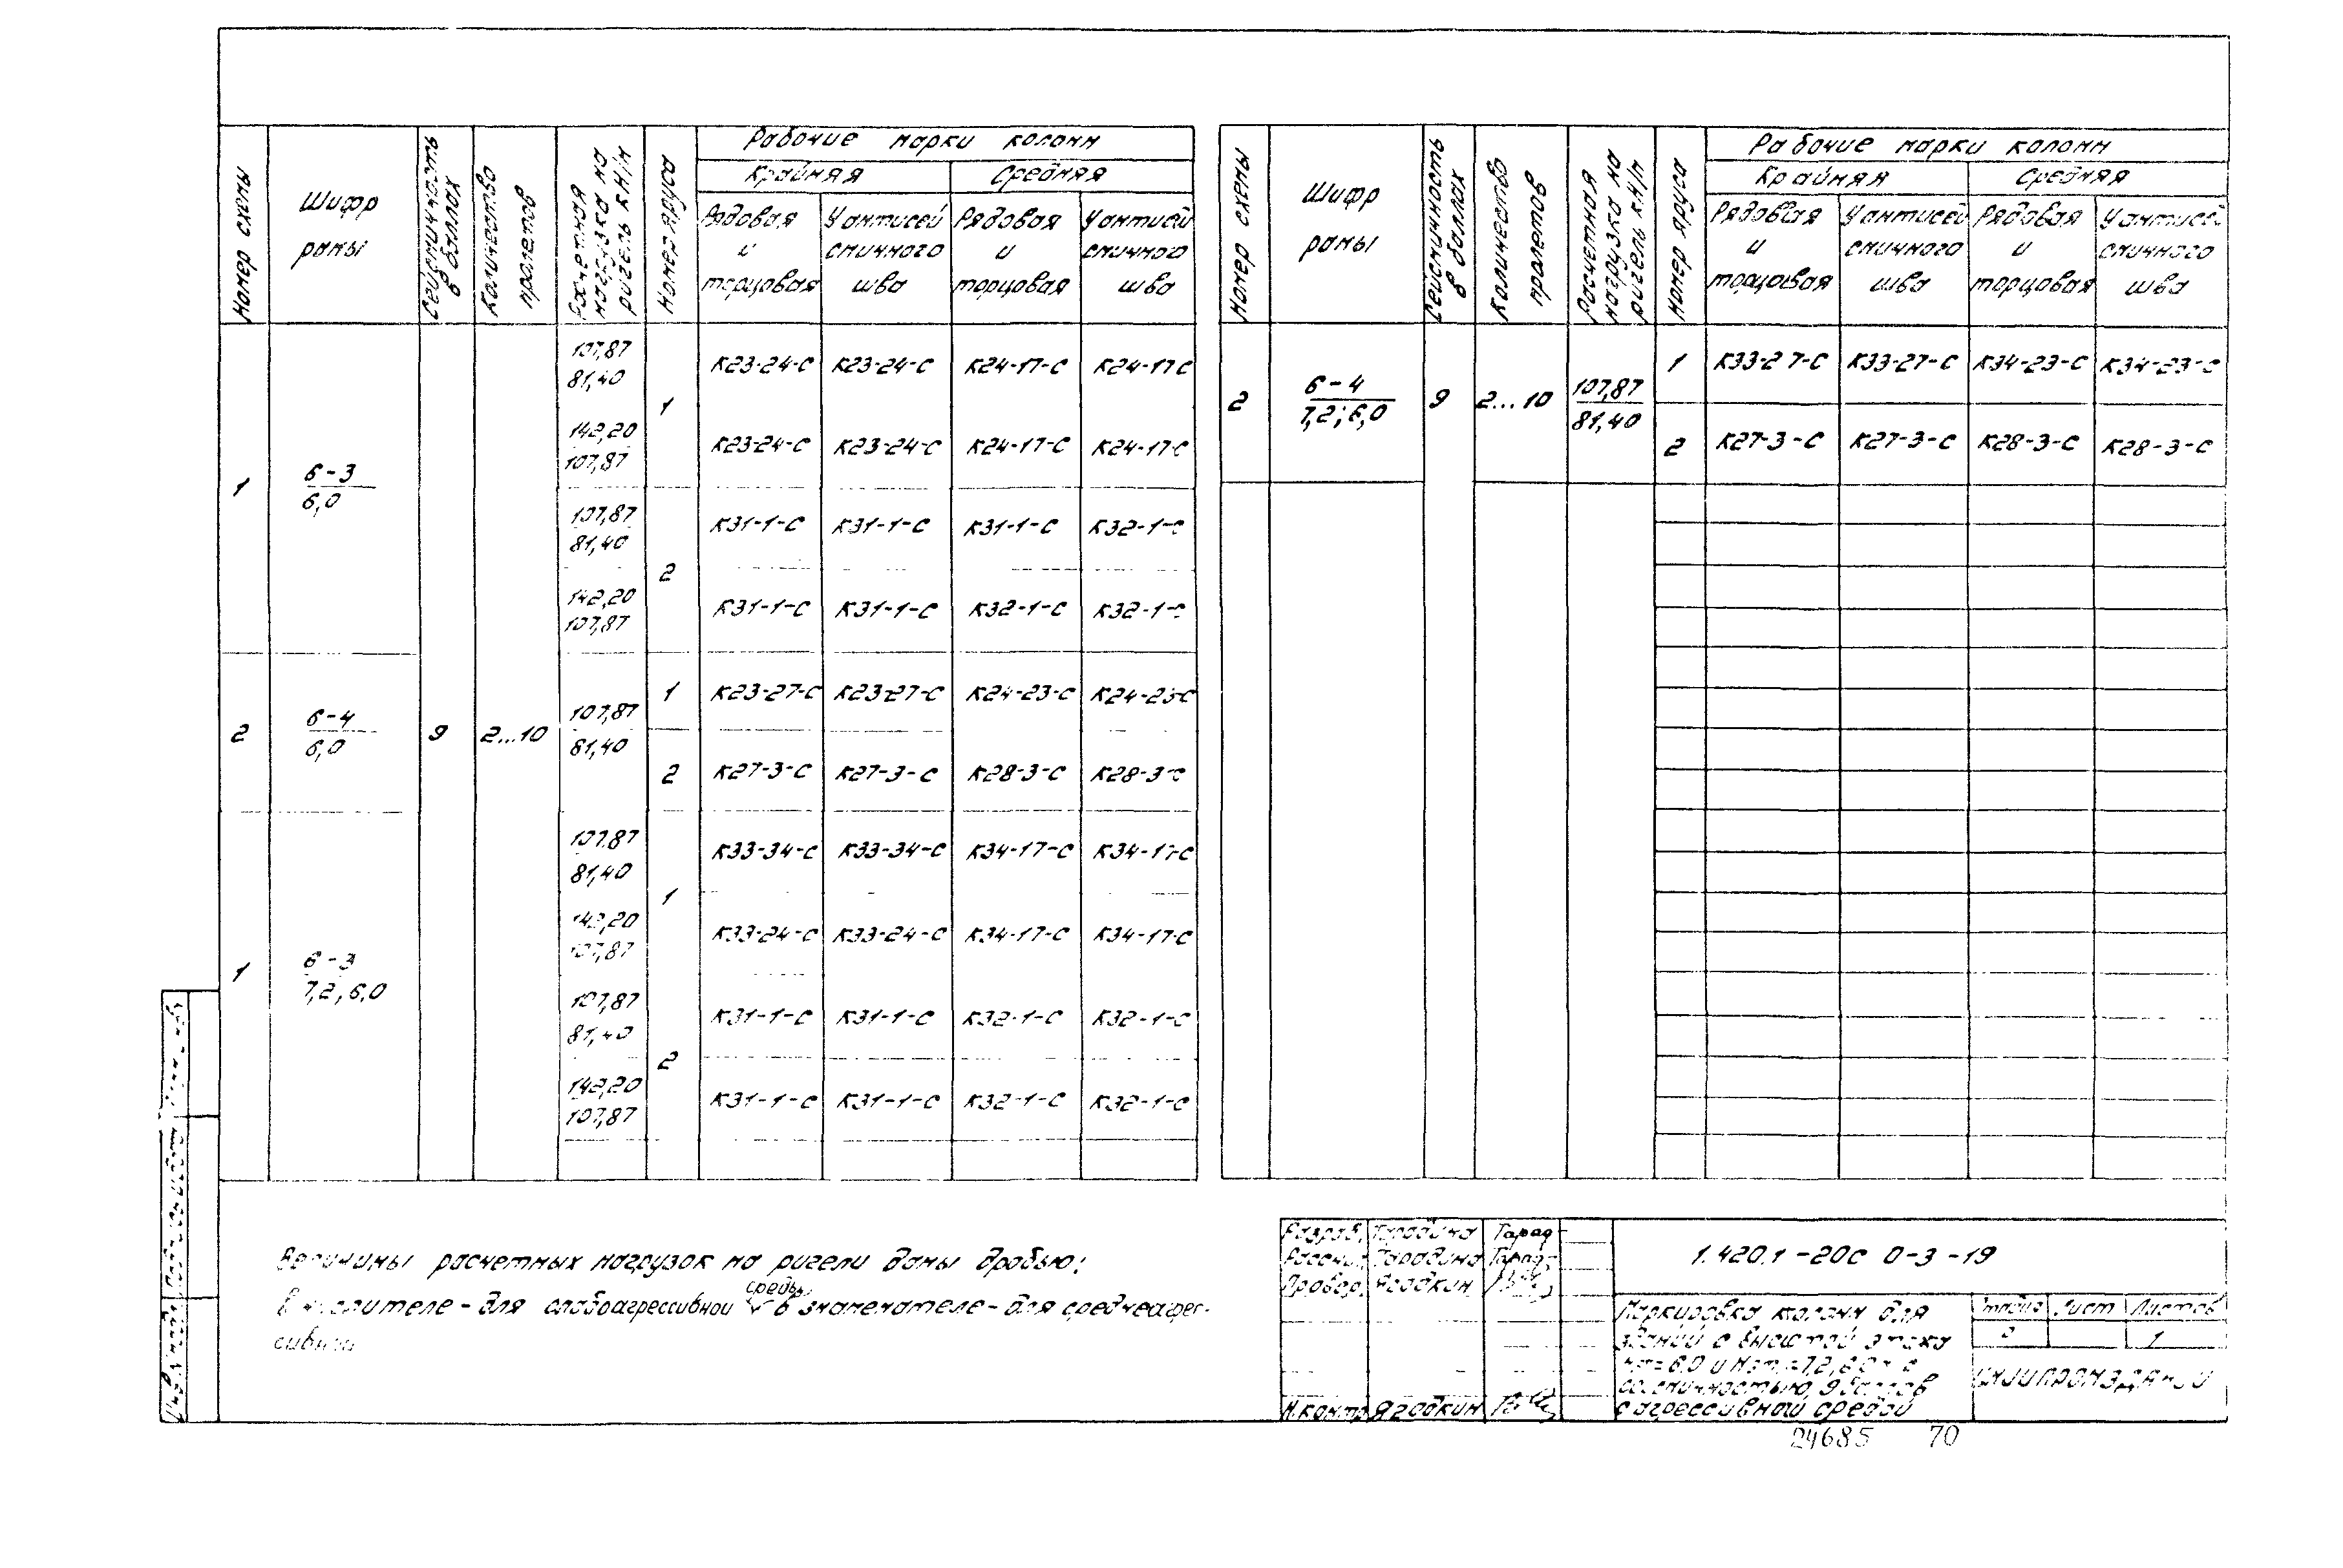 Номер схемы
Шифр рамы
Сейсмичность в баллах
Количество пролетов
Расчетная нагрузка на ригель кН/м
Номер яруса
Рабочие марки колонн
Крайняя Средняя
Рядовая и торцовая
У антисейсмичного шва
Рядовая и торцовая
У антисейсмичного шва
1 6-3/6,0
107,87/81,40 1 К23-24-С К23-24-С К24-17-С К24-17С
142,20/107,87 К23-24-С К23-24-С К24-17-С К24-17-С
107,87/81,40 2 К31-1-С К31-1-С К31-1-С К32-1-С
142,20/107,87 К31-1-С К31-1-С К32-1-С К32-1-С
2 6-4/6,0 9 2...10 107,87/81,40
1 К23-27-С К23-27-С К24-23-С К24-23-С
2 К27-3-С К27-3-С К28-3-С К28-3-С
1 6-3/7,2; 6,0
107,87/81,40 1 К33-34-С К33-34-С К34-17-С К34-17-С
142,20/107,87 К33-24-С К33-24-С К34-17-С К34-17-С
107,87/81,40 2 К31-1-С К31-1-С К32-1-С К32-1-С
142,20/107,87 К31-1-С К31-1-С К32-1-С К32-1-С
Номер схемы
Шифр рамы
Сейсмичность в баллах
Количество пролетов
Расчетная нагрузка на ригель кН/м
Номер яруса
Рабочие марки колонн
Крайняя Средняя
Рядовая и торцовая
У антисейсмичного шва
Рядовая и торцовая
У антисейсмичного шва
2 6-4/7,2; 6,0 9 2...10 107,87/81,40
1 К33-27-С К33-27-С К34-23-С К34-23-С
2 К27-3-С К27-3-С К28-3-С К28-3-С
Величины расчетных нагрузок на ригели даны дробью:
в числителе - для слабоагрессивной среды, в знаменателе - для среднеагрес-
сивной
Разраб. Тарадина Тарад
Рассчит. Тарадина Тарад
Провер. Ягодкин
Н.контр Ягодкин
1.420.1-20С 0-3-19
Маркировка колонн для
зданий с высотой этажа
Нэт=6,0 и Нэт.=7,2; 6,0 м с
сейсмичностью 9 баллов
с агрессивной средой
Стадия Лист Листов
Р 1
ЦНИИПРОМЗДАНИЙ
24685 70